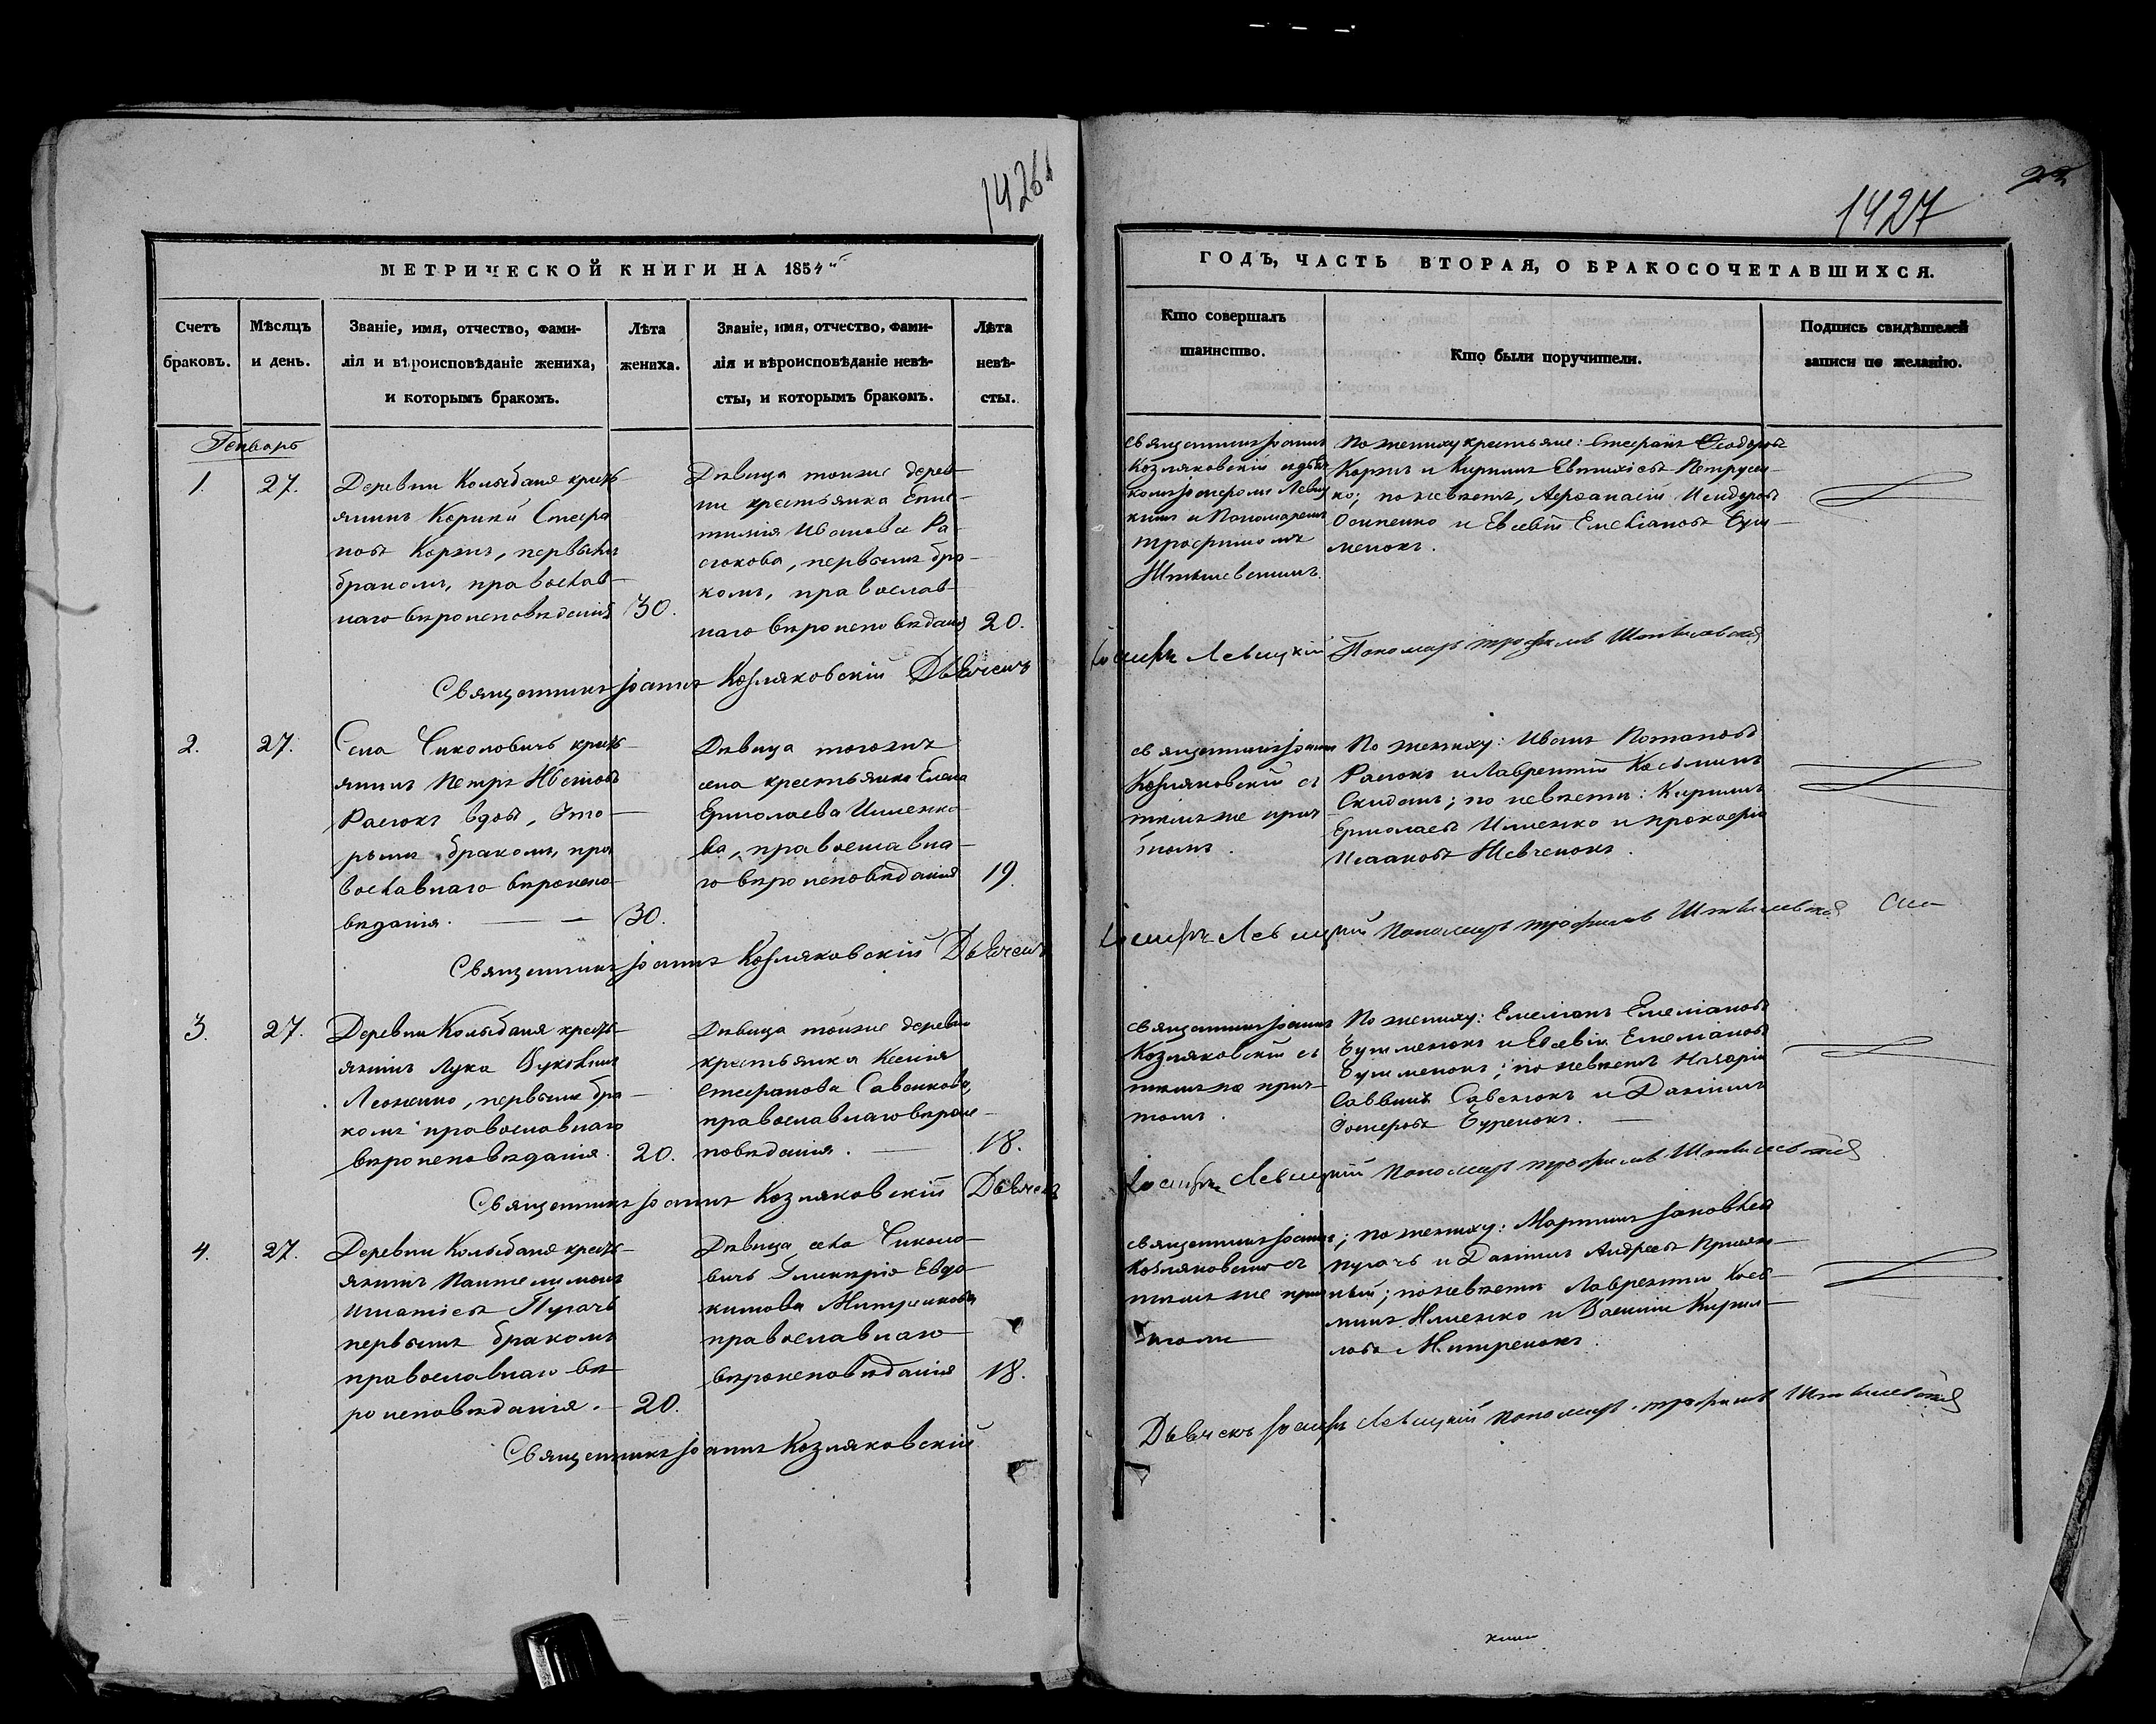 1426
МЕТРИЧЕСКОЙ КНИГИ НА 1854й
Счетъ браковъ.
Мѣсяцъ и день.
Званіе, имя, отчество, фами-
лія и вѣроисповѣданіе жениха,
и которымъ бракомъ.
Лѣта жениха.
Званіе, имя, отчество, фами-
лія и вѣроисповѣданіе невѣ-
сты, и которымъ бракомъ.
Лѣта невѣ-
сты.
Генварь
1.
27.
Деревни Колыбаня кресть-
янинъ Корнилій Стефа
новъ Коржъ, первымъ
бракомъ, православ-
наго вѣроисповѣданія
30.
Дѣвица тойже дерев-
ни крестьянка
Иванова Ра-
сюкова, первымъ бра-
комъ, православ-
наго вѣроисповѣданія
20.
Священникъ Іоаннъ Козляковскій Дьячекъ
2.
27.
Села Чиколовичь кресть-
янинъ Петръ Ивановъ
Расюкъ вдов, вто-
рымъ бракомъ, пра
вославнаго вѣроиспо-
вѣданія.
30.
Дѣвица тогожъ
села крестьянка Елена
Ермолаева Ильенко-
ва, православна-
го вѣроисповѣданія
19.
Священникъ Іоаннъ Козляковскій Дьячекъ
3.
27.
Деревни Колыбаня кресть-
янинъ Лука
Леоненко, первымъ бра-
комъ православнаго
вѣроисповѣданія.
20.
Дѣвица тойже деревни
крестьянка Ксенія
Стефанова Савенкова,
православнаго вѣроис-
повѣданія.
18.
Священникъ Іоаннъ Козляковскій Дьячекъ
4.
27.
Деревни Колыбаня кресть-
янинъ Пантелимонъ
Игнатіевъ Пугачь
первымъ бракомъ
православнаго вѣ-
роисповѣданія.
20.
Дѣвица села Чиколо-
вичь Гликерія Евдо-
кимова Митренкова
православнаго
вѣроисповѣданія
18.
Священникъ Іоаннъ Козляковскій
1427
ГОДЪ, ЧАСТЬ ВТОРАЯ, О БРАКОСОЧЕТАВШИХСЯ.
Кто совершалъ
таинство.
Кто были поручители.
Подпись свидѣтелей
записи по желанію.
священникъ Іоаннъ
Козляковскій съ дьяч
комъ Іосифомъ Левиц
кимъ и Пономаремъ
Трофимомъ
По жениху крестьяне: Стефанъ Ѳеодоровъ
Коржъ и Кирилъ Евтихіевъ Петрусен-
ко; по невѣстѣ, Аѳанасій Исидоровъ
Осипенко и Евсевій Емеліановъ Буш-
менокъ.
Іосифъ Левицкій Пономарь Трофимъ
священникъ Іоаннъ
Козляковскій съ
тѣмъже прич-
томъ.
По жениху: Иванъ Потаповъ
Расюкъ и Лаврентій Косьминъ
Скиданъ; по невѣстѣ: Кирилъ
Ермолаевъ Ильенко и Прокофій
Исааковъ Шевченокъ.
Іосифъ Левицкій Пономарь Трофимъ
священникъ Іоаннъ
Козляковскій съ
тѣмъже прич-
томъ.
По жениху: Емеліанъ Емеліановъ
Бушменокъ и Евсевій Емеліановъ
Бушменокъ; по невѣстѣ Назарій
Саввинъ Савенокъ и Даніилъ
Іосифовъ Буренокъ.
Іосифъ Левицкій Пономарь Трофимъ
священникъ Іоаннъ
Козляковскій съ
тѣмъже прич
томъ
; по жениху: Мартинъ Іаковлевъ
Пугачь и Даніилъ Андреевъ
по невѣстѣ Лаврентій Косьминъ
Ильенко и Василій Кирил-
ловъ Митренокъ.
Дьячекъ Іосифъ Левицкій Пономарь Трофимъ